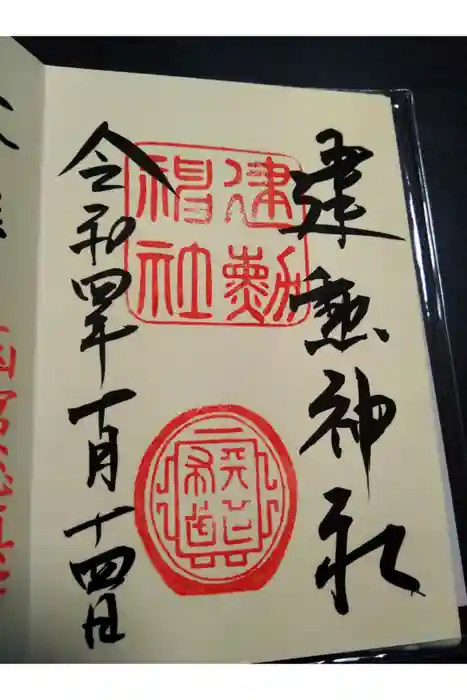 建勲神社
建勲
神社
天下
布武
令和四年十月十四日